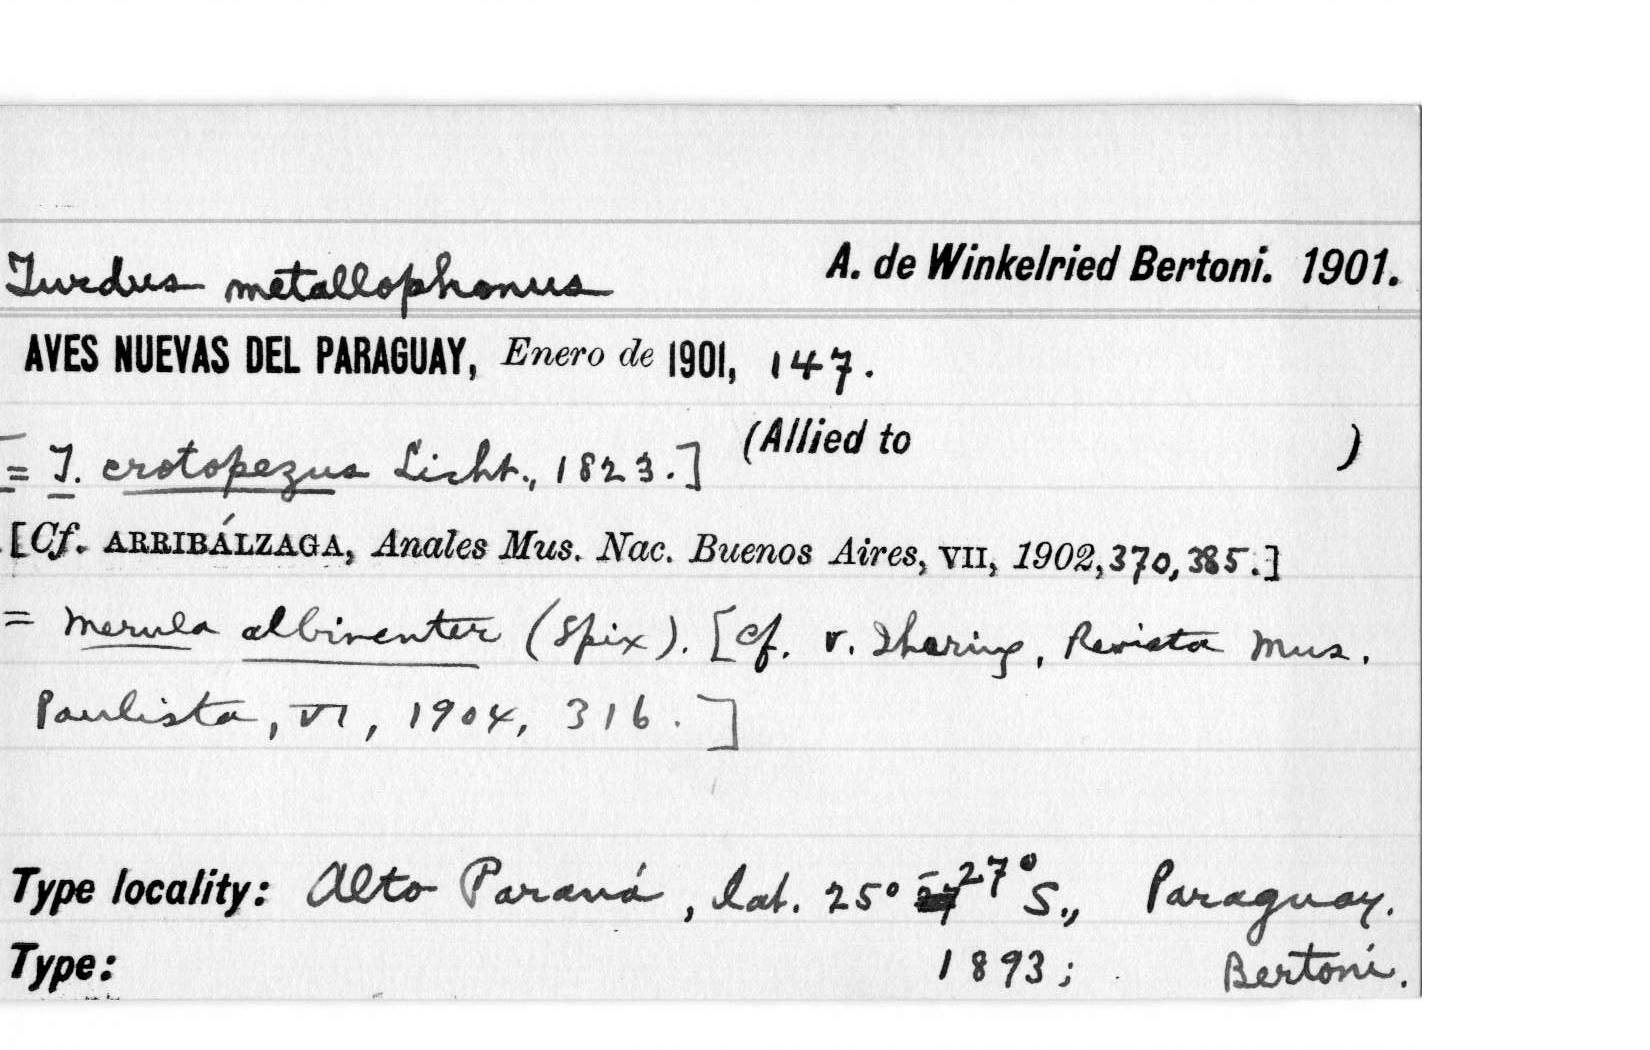 Turdus metallophonus A. de Winkelried Bertoni. 1901.
AVES NUEVAS DEL PARAGUAY, Enero de 1901, 147.
= T. crotopezus Licht., 1823.] (Allied to )
[Cf. ARRIBÁLZAGA, Anales Mus. Nac. Buenos Aires, VII, 1902, 370, 385.]
= Merula albiventer (Spix). [Cf. v. Ihering, Revista Mus.
Paulista, VI, 1904, 316.]
Type locality: Alto Paraná, lat. 25°-27° S., Paraguay.
Type: 1893; Bertoni.